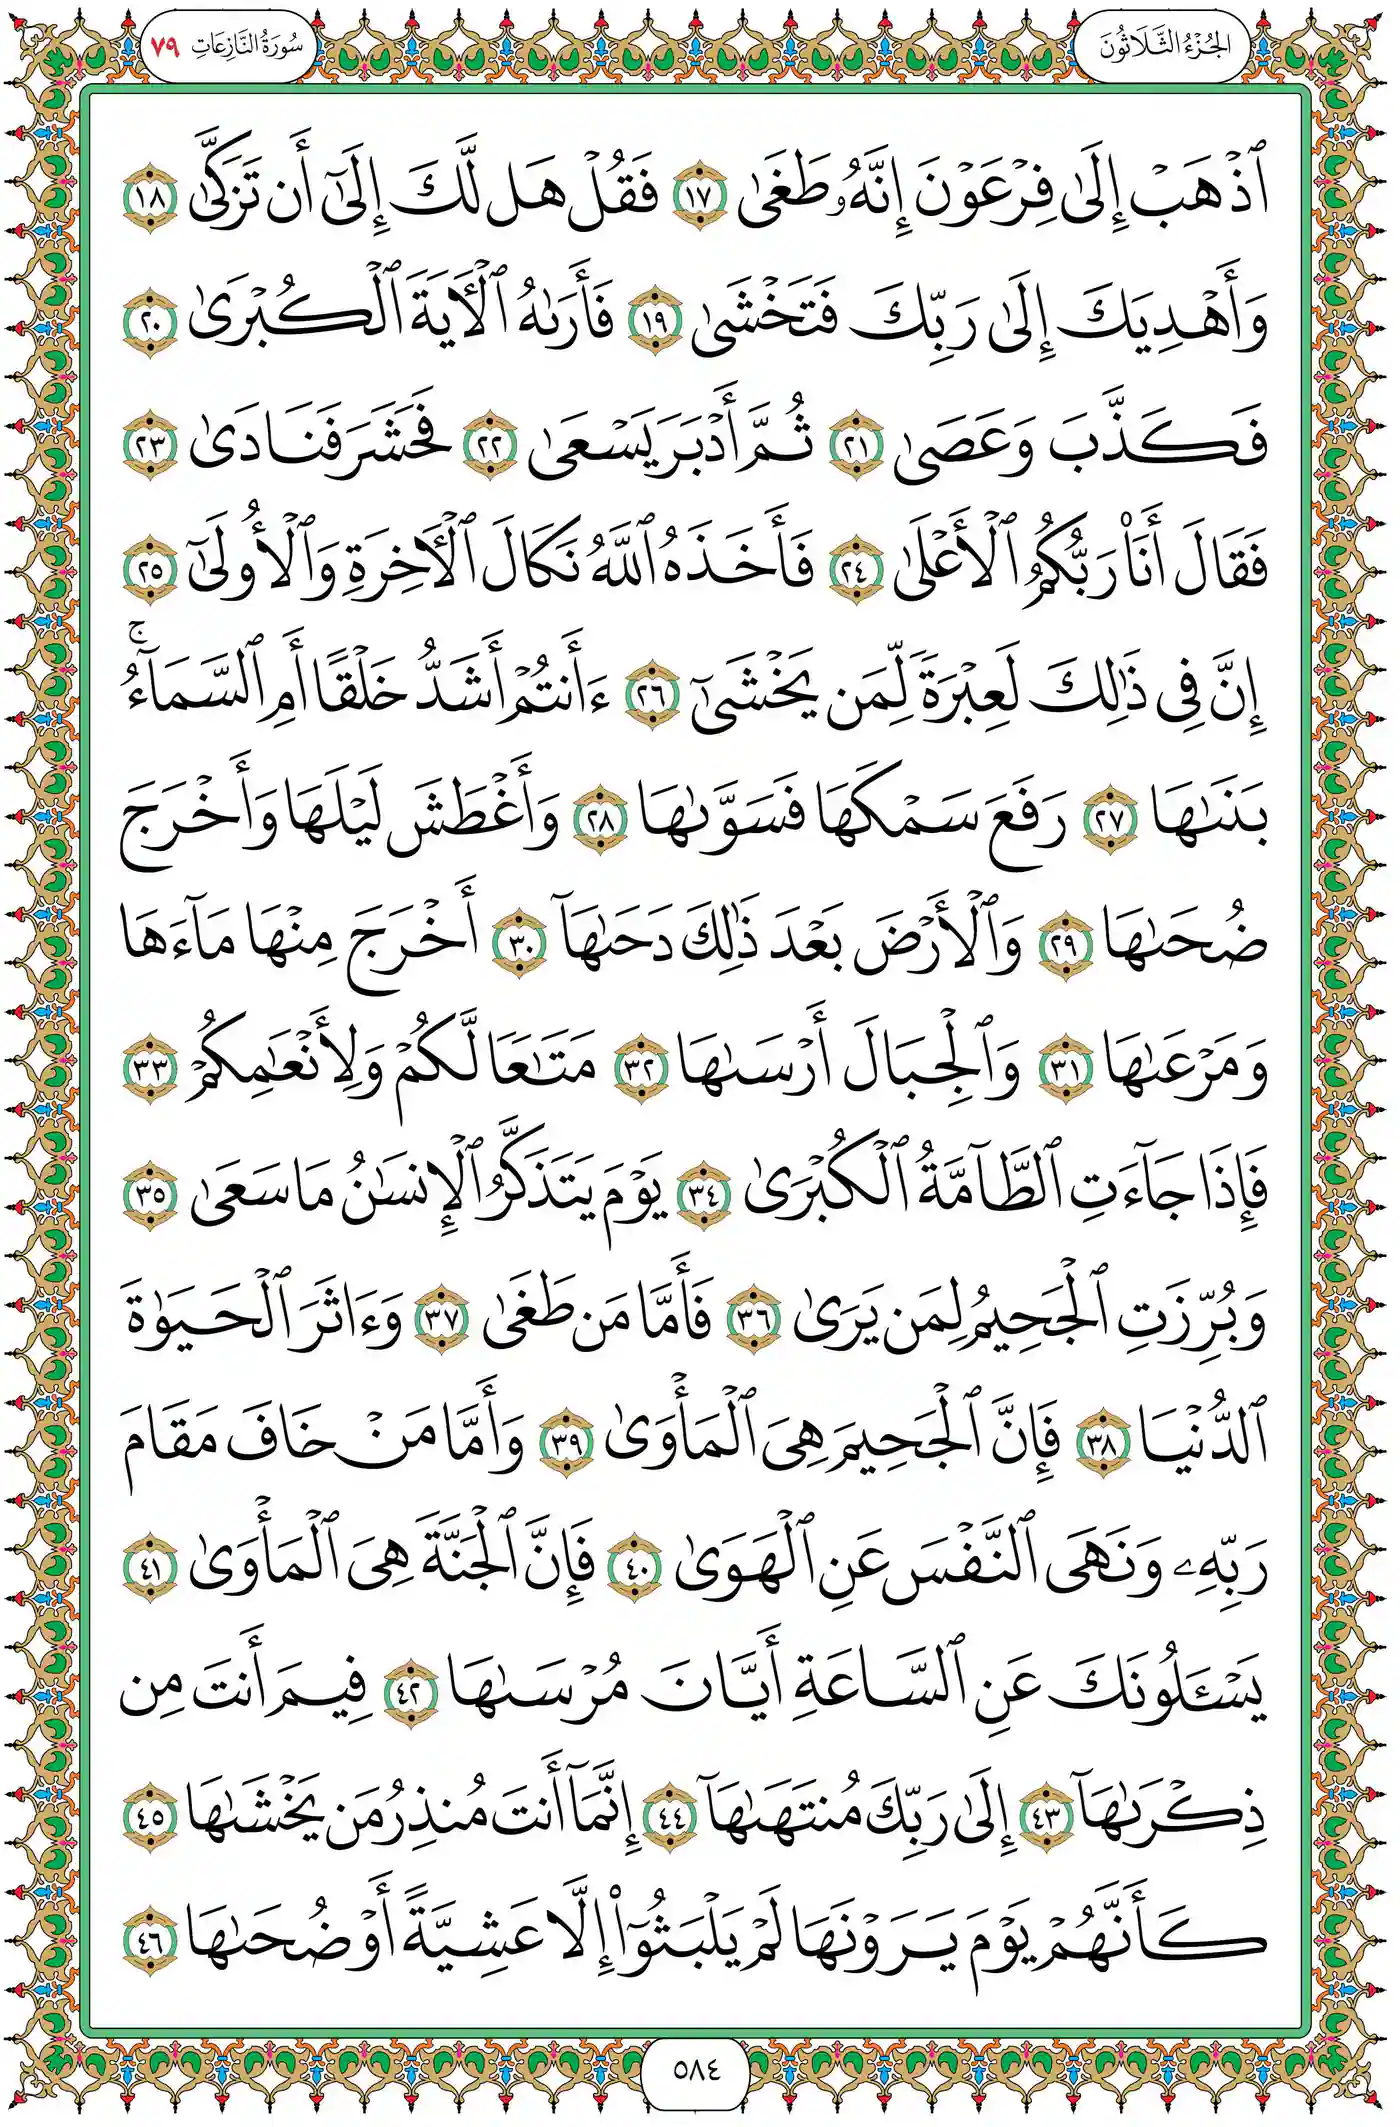 الجُزْءُ الثَّلَاثُونَ
سُورَةُ النَّازِعَاتِ ٧٩
ٱذْهَبْ إِلَىٰ فِرْعَوْنَ إِنَّهُۥ طَغَىٰ ١٧ فَقُلْ هَل لَّكَ إِلَىٰٓ أَن تَزَكَّىٰ ١٨
وَأَهْدِيَكَ إِلَىٰ رَبِّكَ فَتَخْشَىٰ ١٩ فَأَرَىٰهُ ٱلْـَٔايَةَ ٱلْكُبْرَىٰ ٢٠
فَكَذَّبَ وَعَصَىٰ ٢١ ثُمَّ أَدْبَرَ يَسْعَىٰ ٢٢ فَحَشَرَ فَنَادَىٰ ٢٣
فَقَالَ أَنَا۠ رَبُّكُمُ ٱلْأَعْلَىٰ ٢٤ فَأَخَذَهُ ٱللَّهُ نَكَالَ ٱلْـَٔاخِرَةِ وَٱلْأُولَىٰٓ ٢٥
إِنَّ فِى ذَٰلِكَ لَعِبْرَةً لِّمَن يَخْشَىٰٓ ٢٦ ءَأَنتُمْ أَشَدُّ خَلْقًا أَمِ ٱلسَّمَآءُ ۚ
بَنَىٰهَا ٢٧ رَفَعَ سَمْكَهَا فَسَوَّىٰهَا ٢٨ وَأَغْطَشَ لَيْلَهَا وَأَخْرَجَ
ضُحَىٰهَا ٢٩ وَٱلْأَرْضَ بَعْدَ ذَٰلِكَ دَحَىٰهَآ ٣٠ أَخْرَجَ مِنْهَا مَآءَهَا
وَمَرْعَىٰهَا ٣١ وَٱلْجِبَالَ أَرْسَىٰهَا ٣٢ مَتَـٰعًا لَّكُمْ وَلِأَنْعَـٰمِكُمْ ٣٣
فَإِذَا جَآءَتِ ٱلطَّآمَّةُ ٱلْكُبْرَىٰ ٣٤ يَوْمَ يَتَذَكَّرُ ٱلْإِنسَـٰنُ مَا سَعَىٰ ٣٥
وَبُرِّزَتِ ٱلْجَحِيمُ لِمَن يَرَىٰ ٣٦ فَأَمَّا مَن طَغَىٰ ٣٧ وَءَاثَرَ ٱلْحَيَوٰةَ
ٱلدُّنْيَا ٣٨ فَإِنَّ ٱلْجَحِيمَ هِىَ ٱلْمَأْوَىٰ ٣٩ وَأَمَّا مَنْ خَافَ مَقَامَ
رَبِّهِۦ وَنَهَى ٱلنَّفْسَ عَنِ ٱلْهَوَىٰ ٤٠ فَإِنَّ ٱلْجَنَّةَ هِىَ ٱلْمَأْوَىٰ ٤١
يَسْـَٔلُونَكَ عَنِ ٱلسَّاعَةِ أَيَّانَ مُرْسَىٰهَا ٤٢ فِيمَ أَنتَ مِن
ذِكْرَىٰهَآ ٤٣ إِلَىٰ رَبِّكَ مُنتَهَىٰهَآ ٤٤ إِنَّمَآ أَنتَ مُنذِرُ مَن يَخْشَىٰهَا ٤٥
كَأَنَّهُمْ يَوْمَ يَرَوْنَهَا لَمْ يَلْبَثُوٓا۟ إِلَّا عَشِيَّةً أَوْ ضُحَىٰهَا ٤٦
٥٨٤